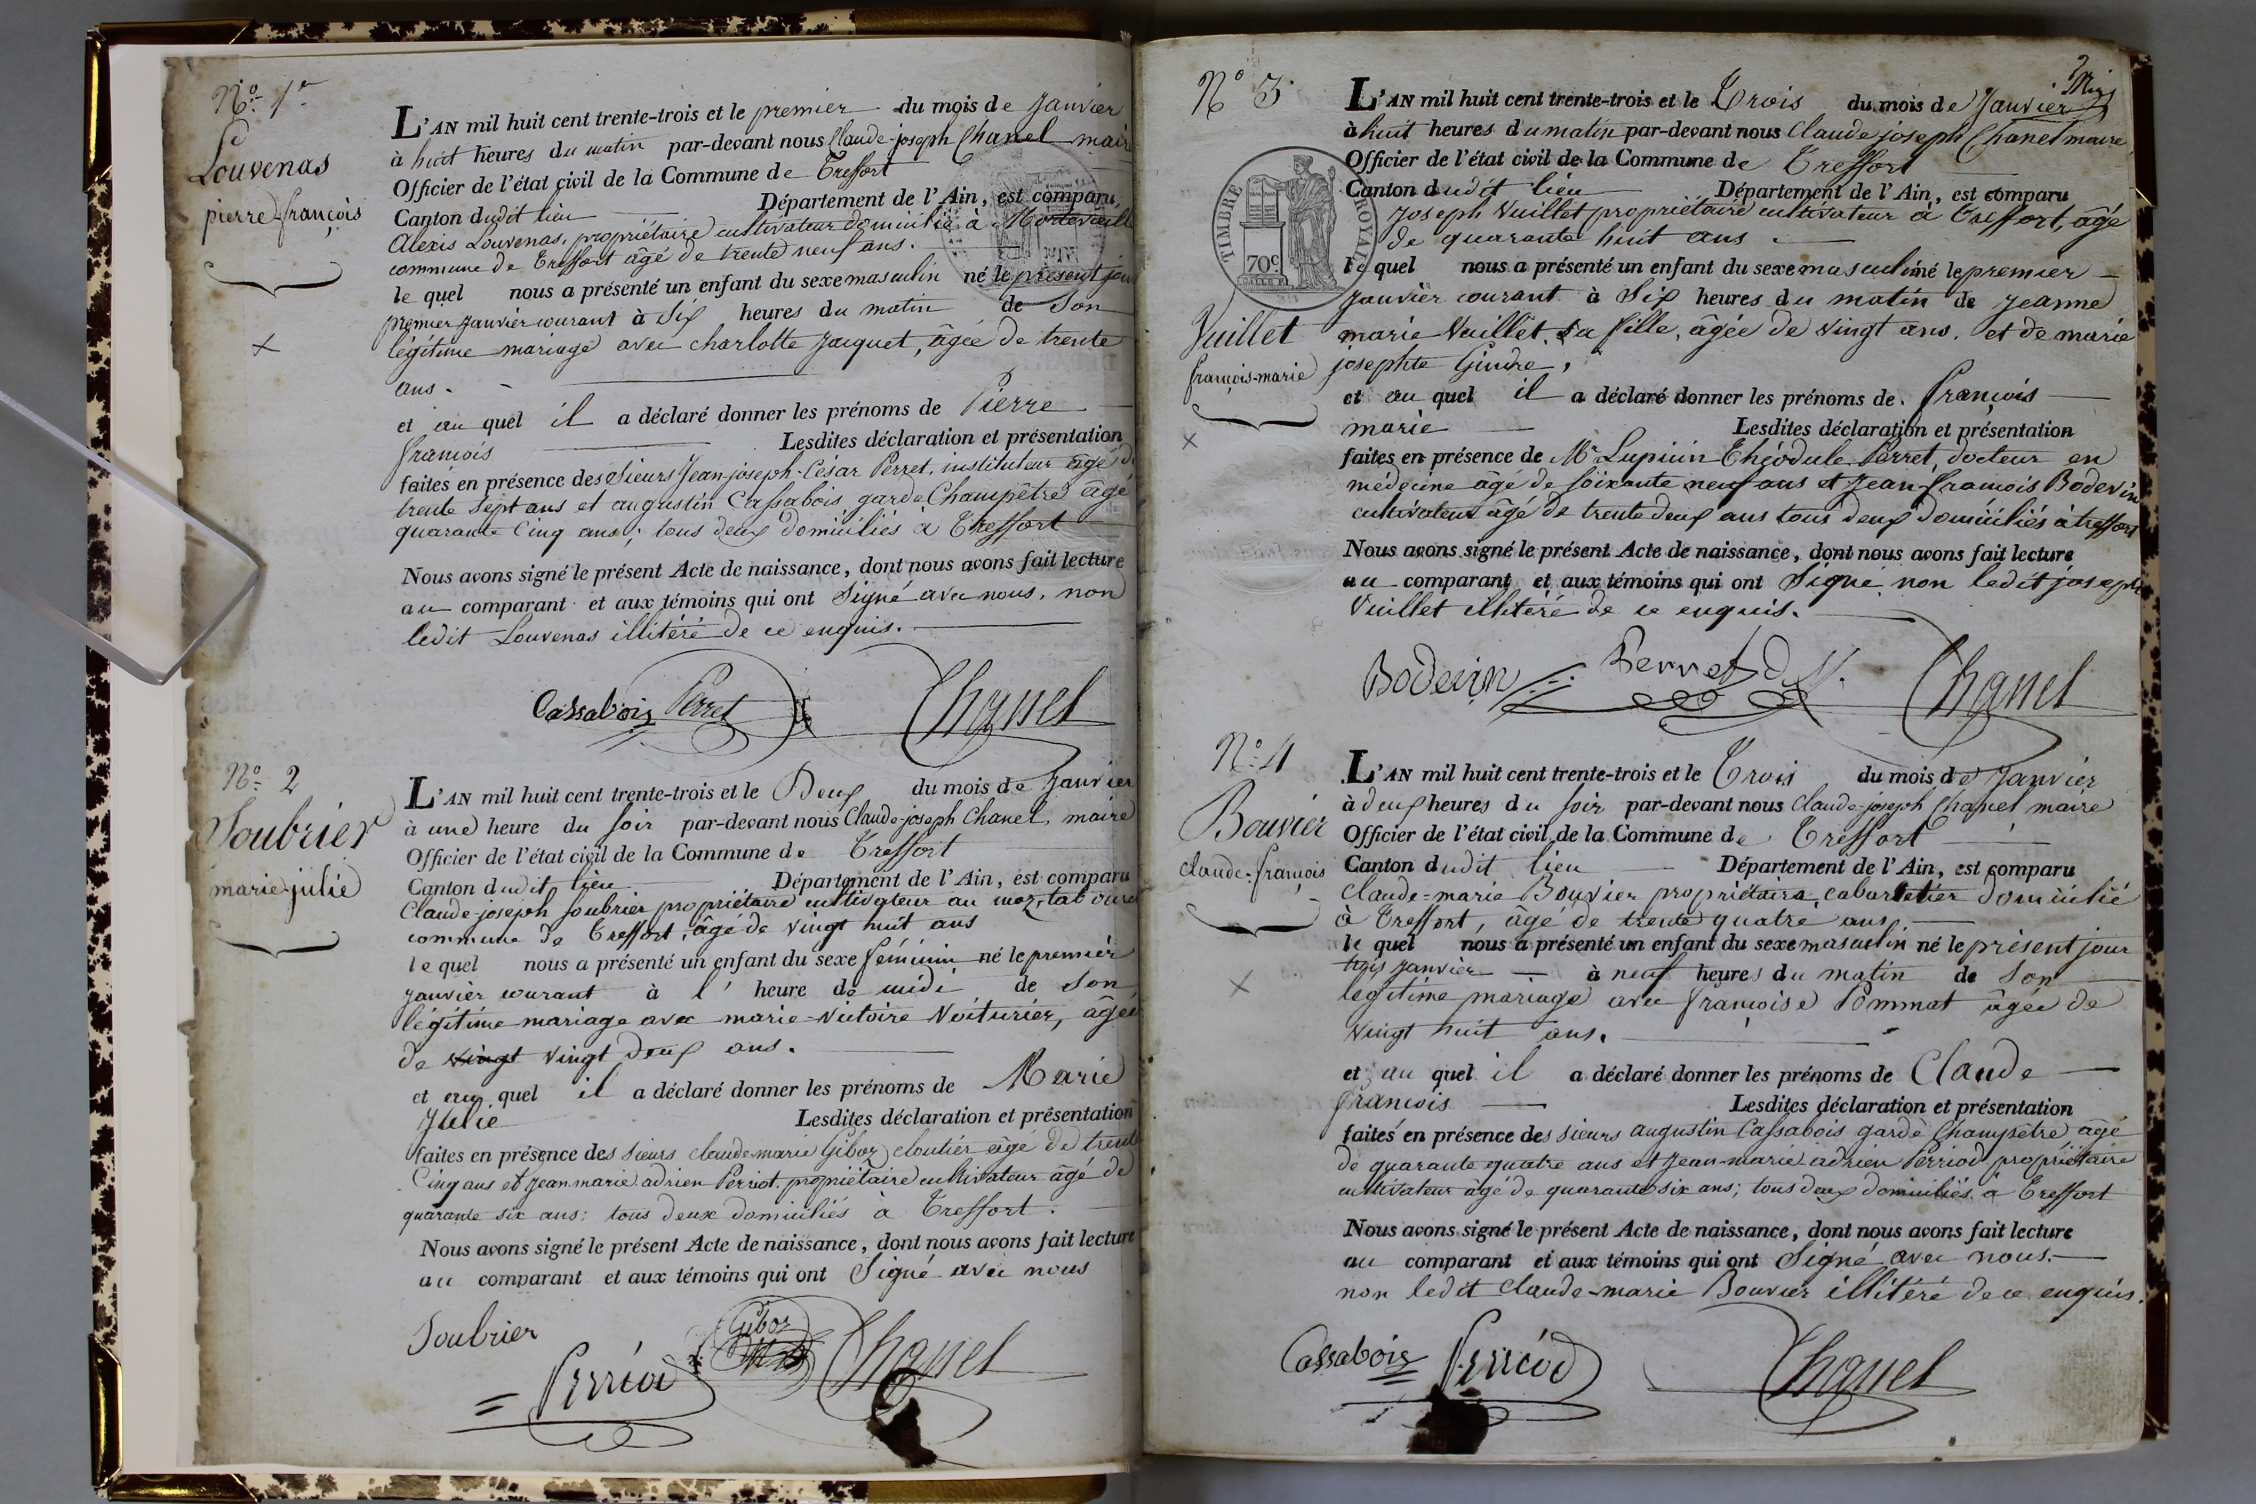 N.º 1er
Louvenas
pierre-françois
L'AN mil huit cent trente-trois et le premier du mois de Janvier
à huit heures du matin par-devant nous Claude-joseph Chanel maire
Officier de l'état civil de la Commune de Treffort
Canton dudit lieu Département de l'Ain, est comparu,
Alexis Louvenas, propriétaire cultivateur domicilié à
commune de Treffort âgé de trente neuf ans.
le quel nous a présenté un enfant du sexe masculin né le présent jour
premier janvier courant à Six heures du matin de Son
légitime mariage avec charlotte Jacquet, âgée de trente
ans.
et au quel il a déclaré donner les prénoms de Pierre
françois Lesdites déclaration et présentation
faites en présence des Sieurs Jean-joseph-César Perret, instituteur âgé de
trente Sept ans et augustin Cassabois garde Champêtre âgé
quarante Cinq ans; tous deux domiciliés à Treffort
Nous avons signé le présent Acte de naissance, dont nous avons fait lecture
au comparant et aux témoins qui ont Signé avec nous, non
ledit Louvenas illitéré de ce enquis.
Cassabois Perret Chanel
N.º 2
Soubrier
marie-julie
L'AN mil huit cent trente-trois et le Deux du mois de Janvier
à une heure du Soir par-devant nous Claude-joseph Chanel, maire
Officier de l'état civil de la Commune de Treffort
Canton dudit lieu Département de l'Ain, est comparu
Claude-joseph Soubrier propriétaire cultivateur au
commune de Treffort, âgé de vingt huit ans
le quel nous a présenté un enfant du sexe féminin né le premier
janvier courant à l' heure de midi de Son
légitime mariage avec marie-victoire Voiturier, âgée
de vingt vingt deux ans.
et au quel il a déclaré donner les prénoms de Marie
Julie Lesdites déclaration et présentation
faites en présence des sieurs claude-marie Giboz cloutier âgé de trente
Cinq ans et jean marie adrien Perriot propriétaire cultivateur âgé de
quarante six ans; tous deux domiciliés à Treffort.
Nous avons signé le présent Acte de naissance, dont nous avons fait lecture
au comparant et aux témoins qui ont Signé avec nous
Soubrier Perriod Giboz Chanel
N.º 3
Vuillet
françois-marie
L'AN mil huit cent trente-trois et le Trois du mois de Janvier
à huit heures du matin par-devant nous Claude joseph Chanel maire,
Officier de l'état civil de la Commune de Treffort
TIMBRE ROYAL
70c
Canton dudit lieu Département de l'Ain, est comparu
Joseph Vuillet propriétaire cultivateur à Treffort, âgé
de quarante huit ans
le quel nous a présenté un enfant du sexe masculin né le premier
janvier courant à Six heures du matin de Jeanne
marie Vuillet, Sa fille, âgée de vingt ans, et de marie
josephte Gindre,
et au quel il a déclaré donner les prénoms de françois
marie Lesdites déclaration et présentation
faites en présence de Mr Lupicin Théodule Perret, docteur en
médecine âgé de Soixante neuf ans et Jean-françois Bodevin
cultivateur âgé de trente deux ans tous deux domiciliés à treffort
Nous avons signé le présent Acte de naissance, dont nous avons fait lecture
au comparant et aux témoins qui ont Signé, non ledit joseph
Vuillet illitéré de ce enquis.
Bodevin Perret Chanel
N.º 4
Bouvier
claude-françois
L'AN mil huit cent trente-trois et le Trois du mois de Janvier
à deux heures du Soir par-devant nous Claude-joseph Chanel maire
Officier de l'état civil de la Commune de Treffort
Canton dudit lieu Département de l'Ain, est comparu
Claude-marie Bouvier propriétaire, cabaretier domicilié
à Treffort, âgé de trente quatre ans,
le quel nous a présenté un enfant du sexe masculin né le présent jour
trois janvier à neuf heures du matin de Son
légitime mariage avec françoise Pommat âgée de
vingt huit ans.
et au quel il a déclaré donner les prénoms de Claude
françois Lesdites déclaration et présentation
faites en présence des sieurs augustin Cassabois garde Champêtre âgé
de quarante quatre ans et jean-marie adrien Perriod propriétaire
cultivateur âgé de quarante six ans; tous deux domiciliés à Treffort
Nous avons signé le présent Acte de naissance, dont nous avons fait lecture
au comparant et aux témoins qui ont Signé avec nous.
non ledit claude-marie Bouvier illitéré de ce enquis.
Cassabois Perriod Chanel